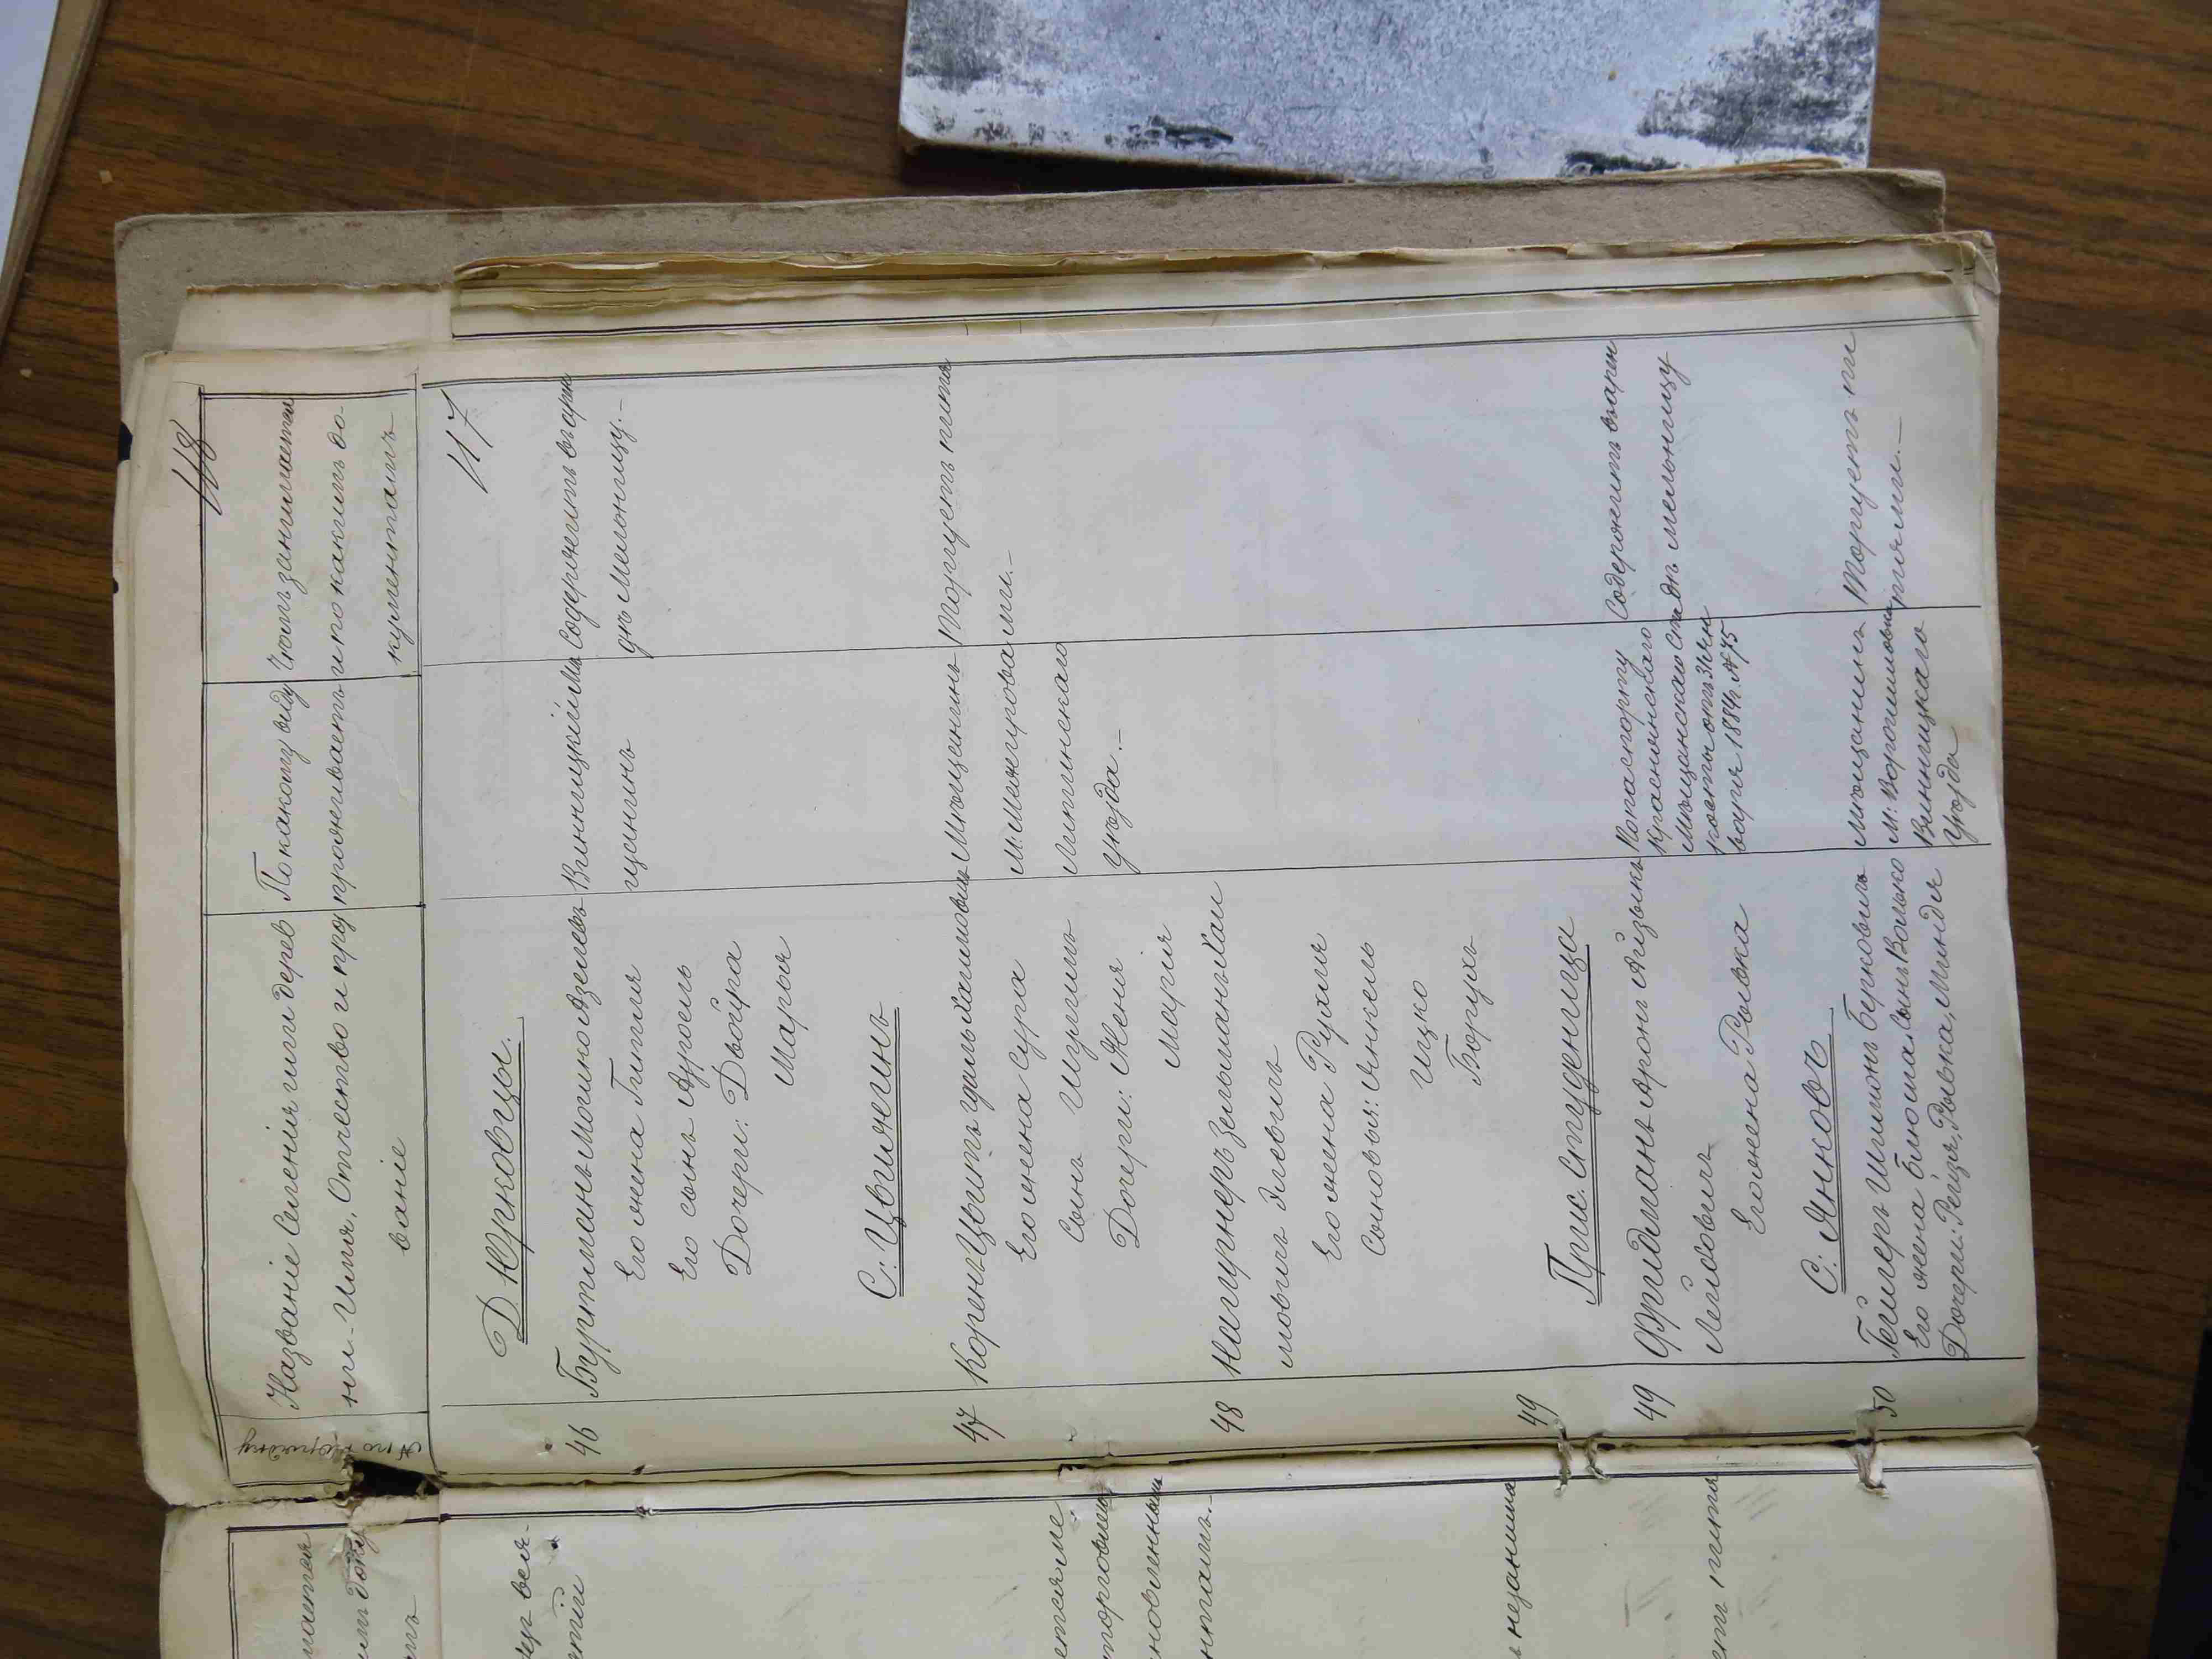 118
№ по порядку
Названіе Селенія или дерев
ни. Имя, Отчество и про
званіе
По какому виду
проживаетъ
Чѣмъ занимается
и по какимъ до-
кументамъ
117
Д. Юрковцы.
46
Буртманъ Мошко
Его жена Гитля
Его сынъ Сруль
Дочери: Двойра
Марья
Винницкій Мѣ
щанинъ
Содержитъ въ арен
дѣ Мельницу.-
С: Цвижинъ
47
Коренъ-Цвитъ Хаимовичъ
Его жена Сура
Сынъ Шулимъ
Дочери: Женя
Марія
Мѣщанинъ
м. Межирова
Литинскаго
уѣзда.-
Торгуетъ питія
ми.-
48
Зельманъ Хаи
мовичъ Элевичъ
Его жена Рухля
Сыновья: Янкель
Ицко
Борухъ
49
Прис. Студеница
49
Фридманъ Аронъ Айзикъ
Лейбовичъ
Его жена Рывка
По паспорту
Краснянскаго
Мѣщанскаго Ста
росты отъ 31 Ян
варя 1884 г. № 75
Содержитъ въ арен
дѣ мельницу
С: Янковъ
50
Геллеръ Шимонъ Берковичъ
Его жена Блюма Сынъ Волько
Дочери: Рейзя, Рывка, Миндля
мѣщанинъ
м: Ворошиловки
Винницкаго
Уѣзда
Торгуетъ пи
тіями.-